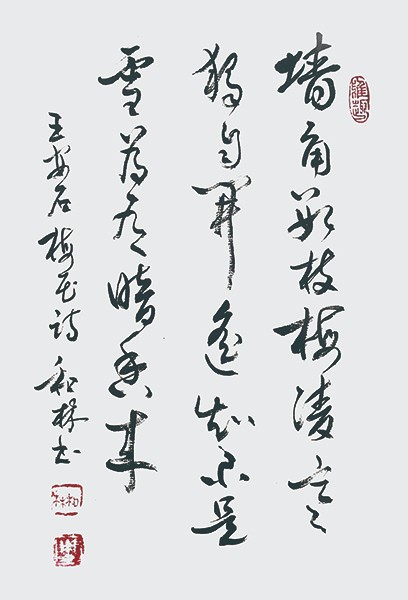 墙角数枝梅凌寒
独自开遥知不是
雪为有暗香来
王安石梅花诗 和林书
和林